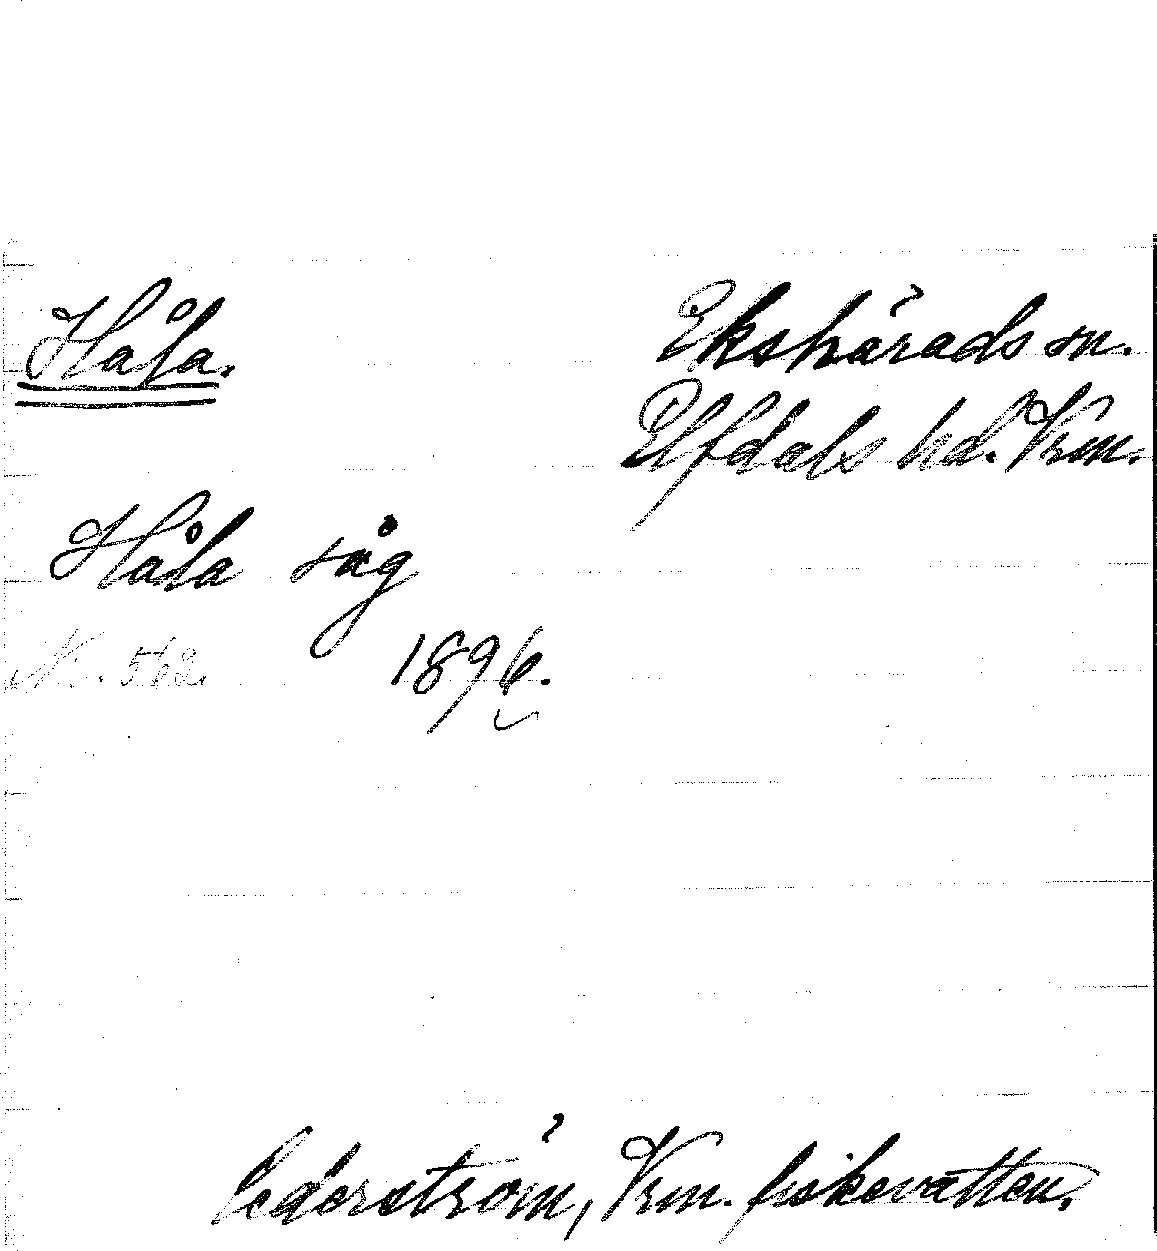 Håla.
Ekshärads sn.
Elfdals hd. Vrm.
Håla såg
N. 562. 1896.
Cederström, Vrm. fiskevatten.